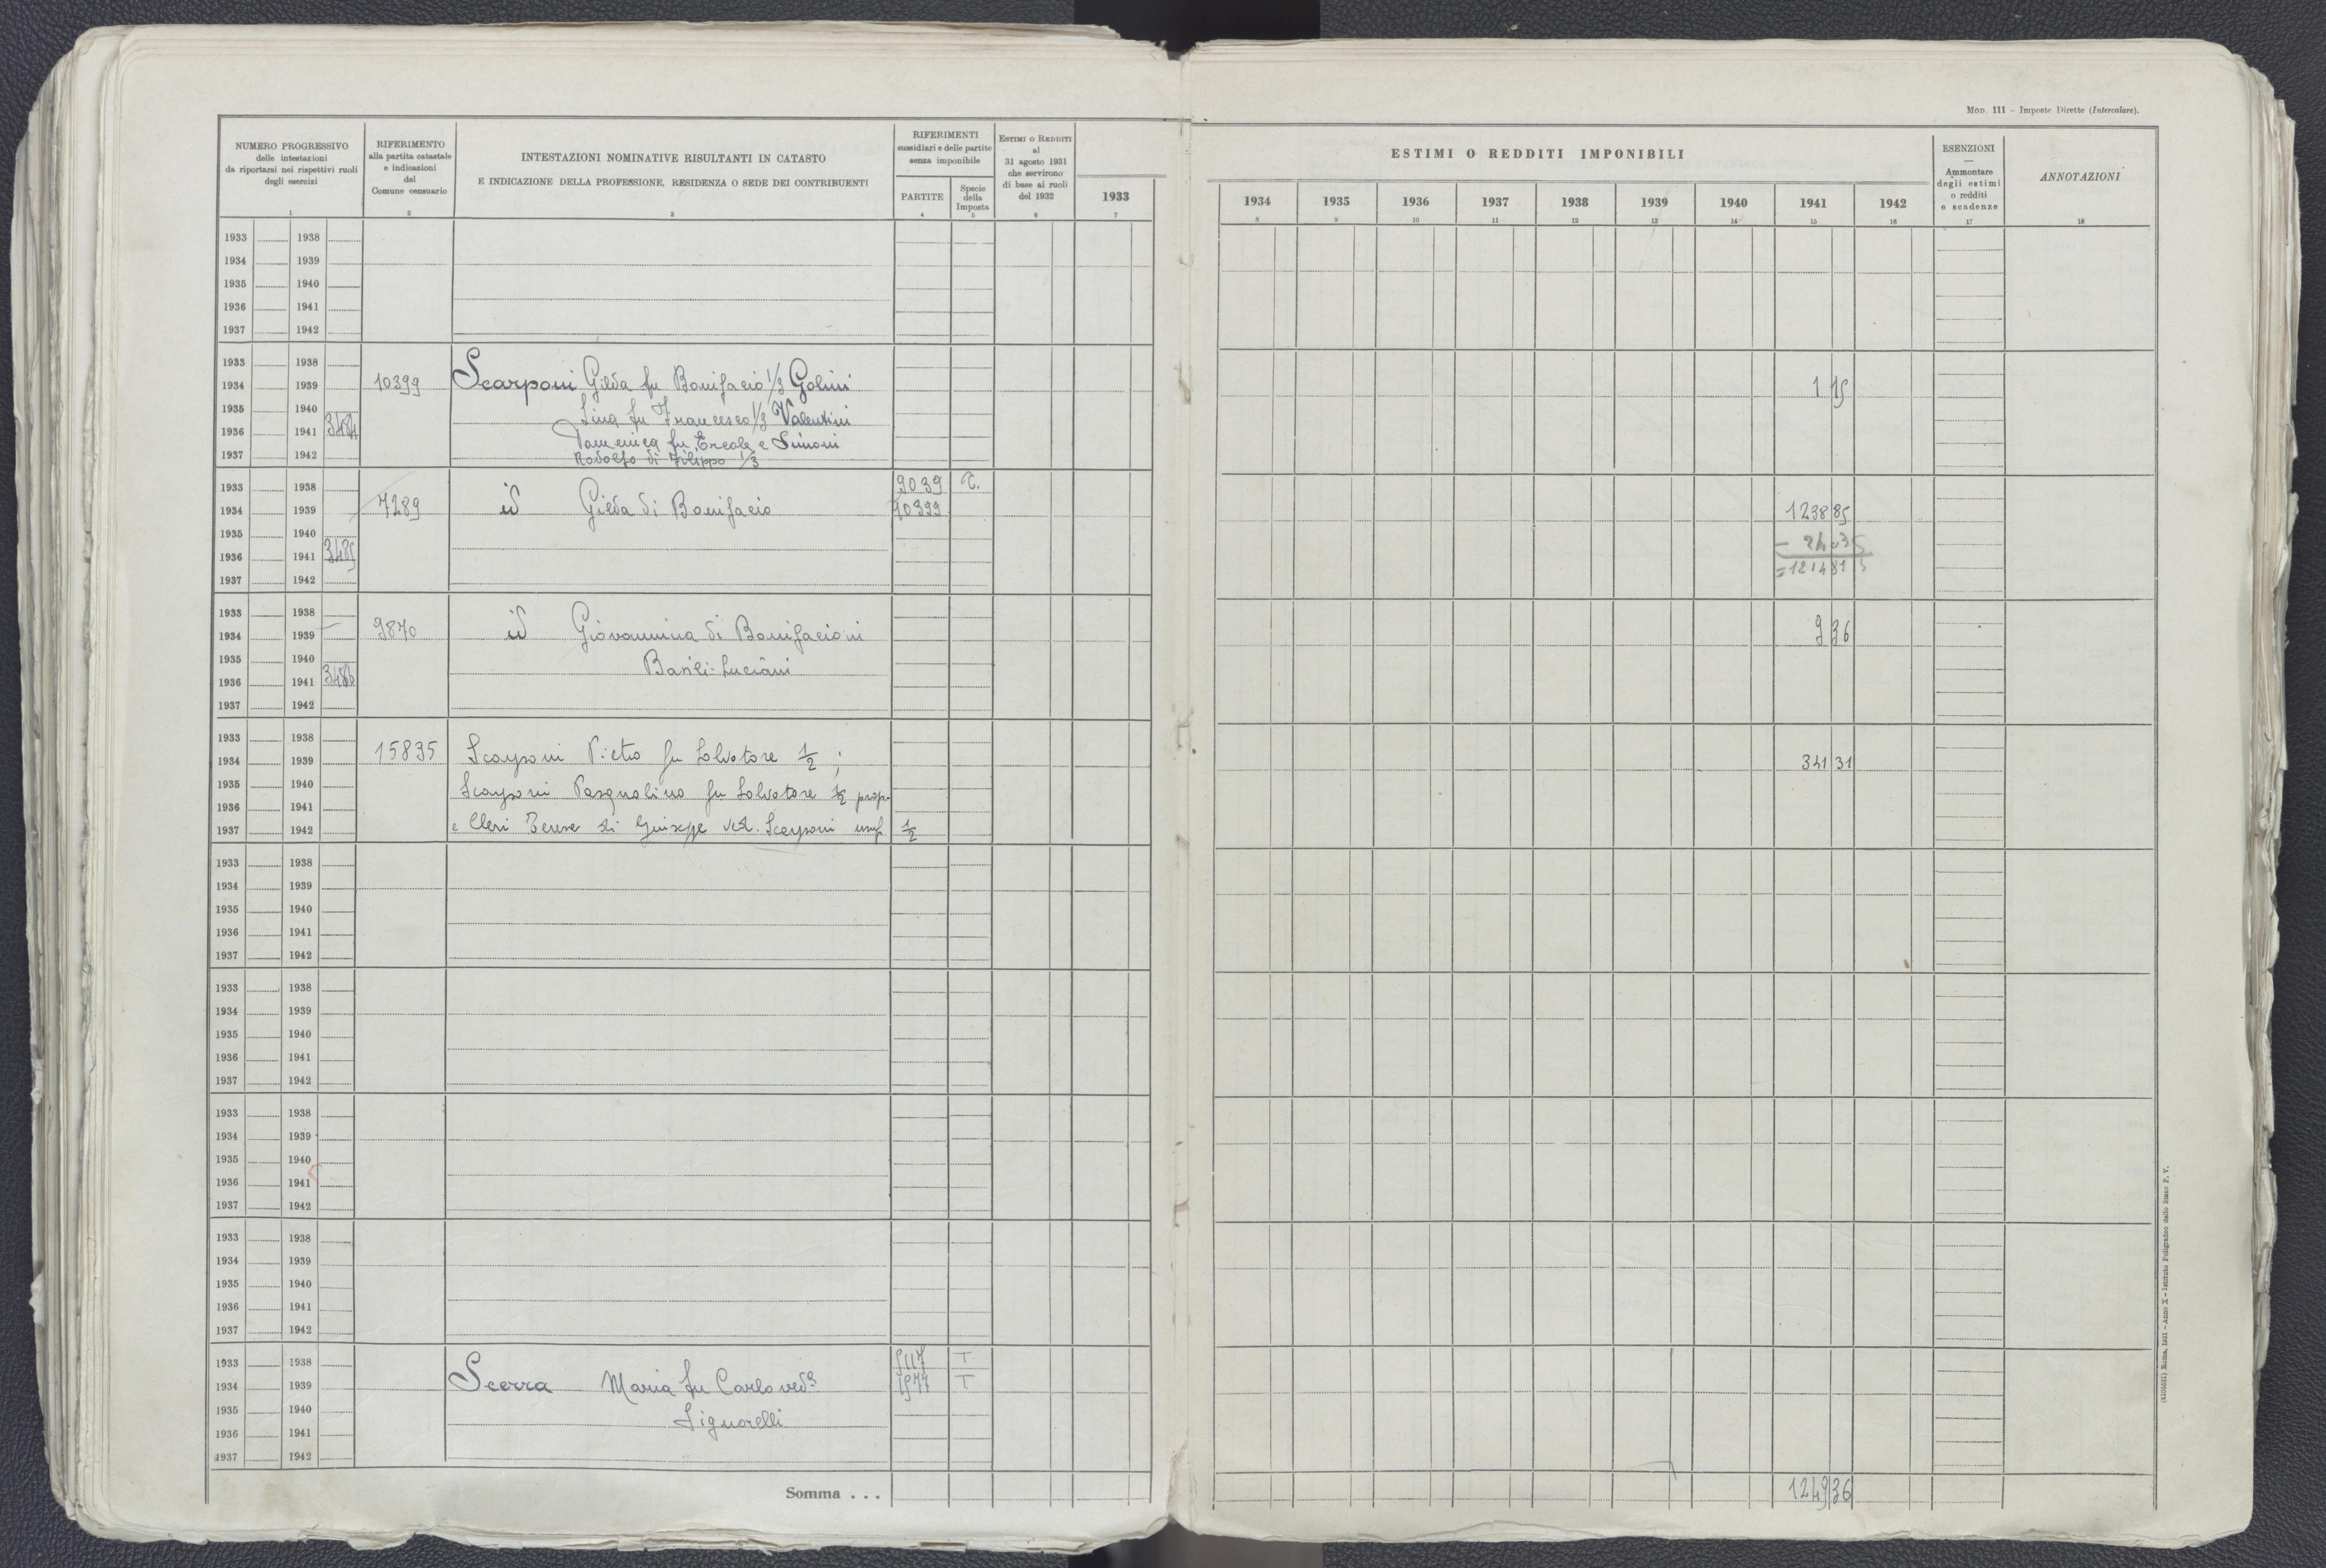 MOD. 111 – Imposte Dirette (Intercalare).
NUMERO PROGRESSIVO
delle intestazioni
da riportarsi nei rispettivi ruoli
degli esercizi
1
RIFERIMENTO
alla partita catastale
e indicazioni
del
Comune censuario
2
INTESTAZIONI NOMINATIVE RISULTANTI IN CATASTO
E INDICAZIONE DELLA PROFESSIONE, RESIDENZA O SEDE DEI CONTRIBUENTI
3
RIFERIMENTI
sussidiari e delle partite
senza imponibile
PARTITE
4
Specie
della
Imposta
5
ESTIMI O REDDITI
al
31 agosto 1931
che servirono
di base ai ruoli
del 1932
6
1933
7
ESTIMI O REDDITI IMPONIBILI
1934 1935 1936 1937 1938 1939 1940 1941 1942
8 9 10 11 12 13 14 15 16
ESENZIONI
—
Ammontare
degli estimi
o redditi
e scadenze
17
ANNOTAZIONI
18
1933 1938
1934 1939
1935 1940
1936 1941
1937 1942
1933 1938
1934 1939 10399 Scarponi Gilda fu Bonifacio 1/3 Golini 1 15
1935 1940 Lina fu Francesco 1/3 Valentini
1936 1941 3484 Domenica fu Ercole e Simoni
1937 1942 Rodolfo di Filippo 1/3
1933 1938 9039 T.
1934 1939 7289 id Gilda di Bonifacio 10399 1238 85
1935 1940
1936 1941 3485
1937 1942
1933 1938
1934 1939 9870 id Giovannina di Bonifacio in 9 36
1935 1940 Basili-Luciani
1936 1941 3486
1937 1942
1933 1938
1934 1939 15835 Scarponi Pietro fu Salvatore 1/2 ; 341 31
1935 1940 Scarponi Pasqualino fu Salvatore 1/2 prop.
1936 1941
1937 1942 e Cleri Teresa di Giuseppe ved. Scarponi usuf. 1/2
1933 1938
1934 1939
1935 1940
1936 1941
1937 1942
1933 1938
1934 1939
1935 1940
1936 1941
1937 1942
1933 1938
1934 1939
1935 1940
1936 1941
1937 1942
1933 1938
1934 1939
1935 1940
1936 1941
1937 1942
1933 1938 5117 T
1934 1939 Scerra Maria fu Carlo ved. 1577 T
1935 1940 Signorelli
1936 1941
1937 1942
Somma . . . 1249 36
(4103531) Roma, 1931 – Anno X – Istituto Poligrafico dello Stato P. V.